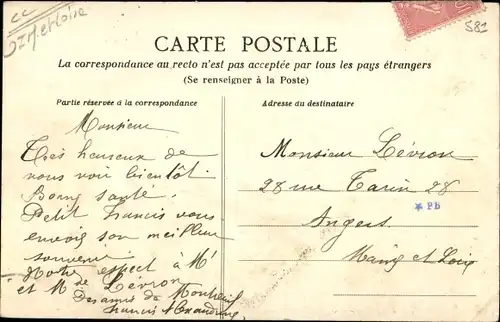 CC
CARTE POSTALE
La correspondance au recto n'est pas acceptée par tous les pays étrangers
(Se renseigner à la Poste)
Partie réservée à la correspondance
Adresse du destinataire
Monsieur
Très heureux de
vous voir bientôt.
Bonne santé.
Petit Francis vous
envoie son meilleur
souvenir
Notre respect à Mr
et Me de Lévron
Des amis de Montreuil
Francis
Monsieur Lévron
28 rue Tarin 28
Angers
Maine et Loire
* PB
581